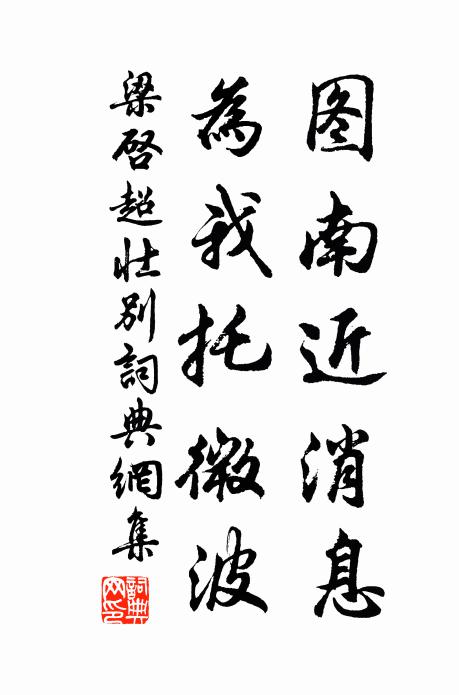 图南近消息
為我托微波
梁啓超壯別詞典網集
詞典网印